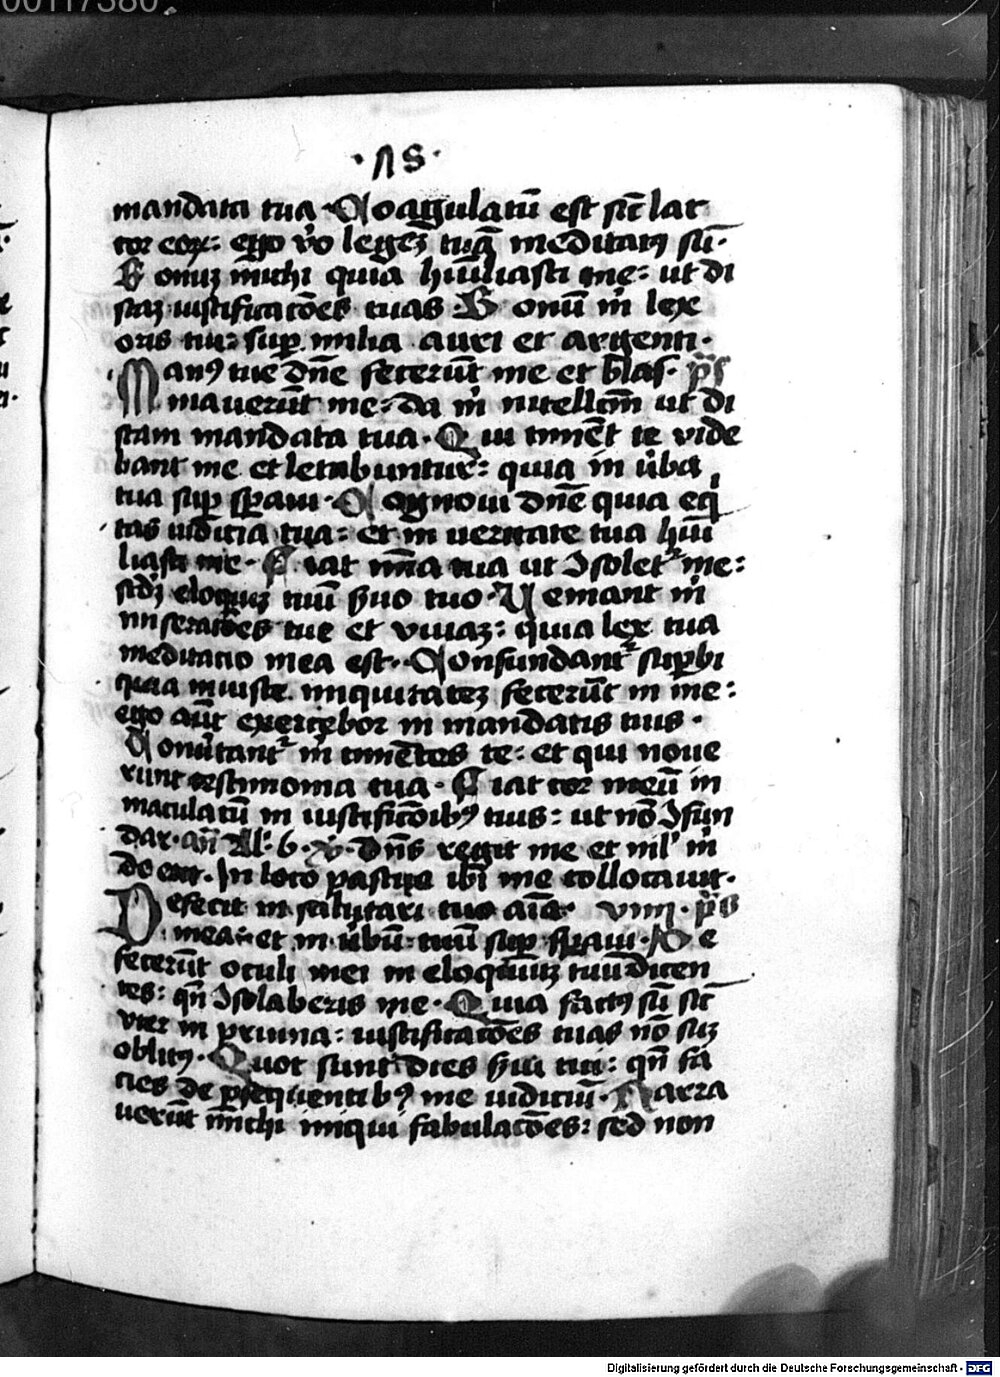 00117380
· ΛS ·
mandata tua · Coagulatū est sic̄ lac
cor eoꝝ: ego v̓o legeꝫ tuā meditatꝰ sū·
Bonuꝫ michi quia hūiliasti me: ut di
scaꝫ iustificatōes tuas · Bonū m̓ lex
oris tui: sup milia auri et argenti·
Manꝰ tue dn̄e fecerūt me et plas· p̄s
mauerūt me: da m̓ intellcm̄ ut di
scam mandata tua · Qui timēt te vide
bunt me et letabuntur: quia in v̓ba
tua sup sꝑaui · Cognoui dn̄e quia eq̓
tas iudicia tua: et in ueritate tua hūi
liasti me · Fiat mīa tua ut ꝯsolet᷑ me:
scd̓ꝫ eloquiuꝫ tuū s̓uo tuo · Veniant m̓
miseratōes tue et viuaꝫ: quia lex tua
meditatio mea est · Confundant᷑ suꝑbi
quia iniuste iniquitateꝫ fecerūt in me:
ego aūt exercebor in mandatis tuis ·
Conūtant᷑ m̓ timētes te: et qui noue
runt testimonia tua · Fiat cor meū in
maculatū in iustificōibꝰ tuis: ut nō ꝯfun
dar · an̄ Al̓ · b · v̓ · Dn̄s regit me et nil̓ m̓
de erit · In loco pascue ibi me collocauit·
Defecit in salutari tuo aīa · viiij · p̄s
mea: et in v̓bū tuū sup sꝑaui · De
fecerūt oculi mei in eloquiuꝫ tuū dicen
tes: qn̄ ꝯsolaberis me · Quia factꝰ sū sic̄
vter in pruina: iustificatōes tuas nō suꝫ
oblitꝰ · Quot sunt dies s̓ui tui: qn̄ fa
cies de ꝑsequentibꝰ me iudiciū · Narra
uerūt michi iniqui fabulatōes: sed non
Digitalisierung gefördert durch die Deutsche Forschungsgemeinschaft - DFG